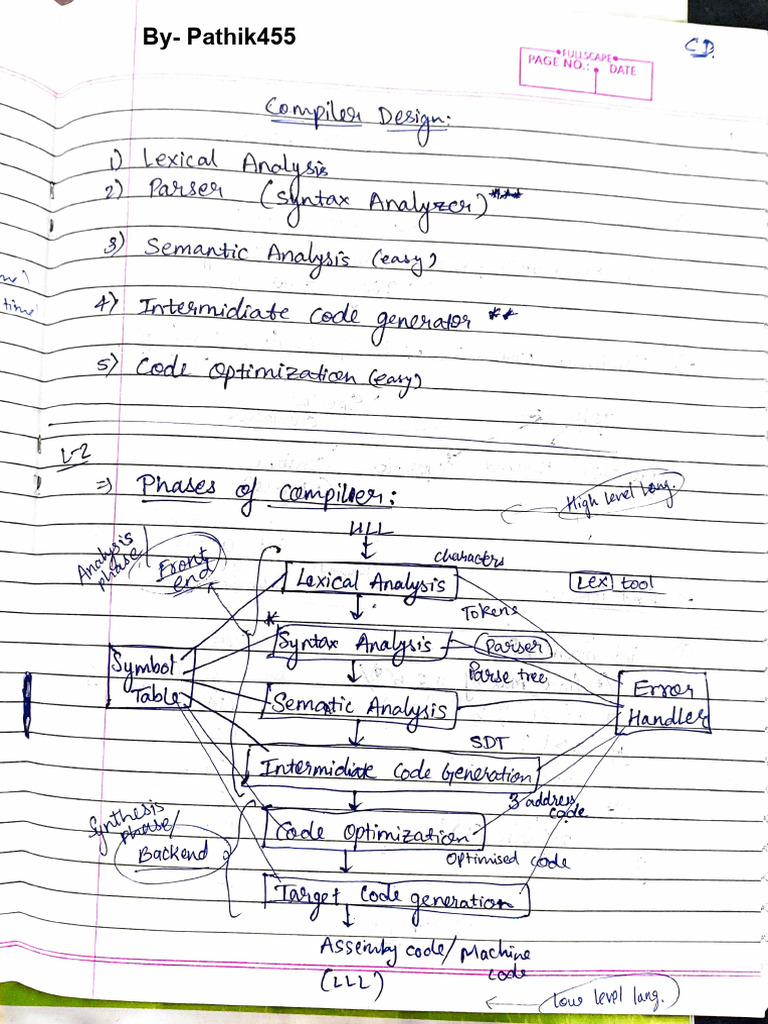 By- Pathik455
CD.
FULLSCAPE
PAGE NO.: DATE
Compiler Design:
1) Lexical Analysis
2) Parser (Syntax Analyzer) ***
3) Semantic Analysis (easy)
time
4) Intermidiate code generator **
5) Code Optimization (easy)
L-2
=> Phases of compiler:
High level lang.
HLL
Analysis phase/
Front end
characters
Lexical Analysis
Lex tool
Tokens
* Syntax Analysis
Parser
Parse tree
Symbol Table
Error Handler
Sematic Analysis
SDT
Intermidiate Code Generation
3 address code
Synthesis phase/
Backend
Code Optimization
Optimised code
Target code generation
Assembly code/Machine code
(LLL)
Low level lang.